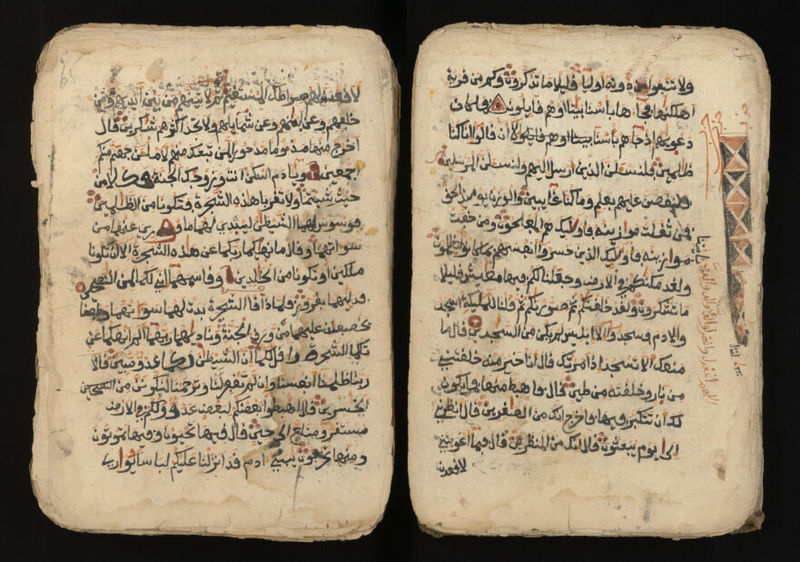 ولا تتبعوا من دونه اوليا قليلا ما تذكرون وكم من قرية
اهلكنها فجاها باسنا بيتا او هم قايلون فما كان
دعويهم اذ جاهم باسنا الا ان قالوا انا كنا
ظلمين فلنسلن الذين ارسل اليهم ولنسلن المرسلين
فلنقصن عليهم بعلم وما كنا غايبين والوزن يوميذ الحق
فمن ثقلت موازينه فاوليك هم المفلحون ومن خفت
موازينه فاوليك الذين خسروا انفسهم بما كانوا يظلمون
ولقد مكنكم في الارض وجعلنا لكم فيها معيش قليلا
ما تشكرون ولقد خلقنكم ثم صورنكم ثم قلنا للمليكة اسجد
والادم فسجدوا الا ابليس لم يكن من السجدين قال ما
منعك الا تسجد اذ امرتك قال انا خير منه خلقتني
من نار وخلقته من طين قال فاهبط منها فما يكون
لك ان تتكبر فيها فاخرج انك من الصغرين قال انظرني
الى يوم يبعثون قال انك من المنظرين قال فبما اغويتني
لاقعدن
لاقعدن لهم صراطك المستقيم ثم لاتينهم من بين ايديهم ومن
خلفهم وعن ايمنهم وعن شمايلهم ولا تجد اكثرهم شكرين قال
اخرج منها مذوما مدحورا لمن تبعك منهم لاملن جهنم منكم
اجمعين ويادم اسكن انت وزوجك الجنة فكلا من
حيث شيتما ولا تقربا هذه الشجرة فتكونا من الظالمين
فوسوس لهما الشيطن ليبدي لهما ما وري عنهما من
سواتهما وقال ما نهيكما ربكما عن هذه الشجرة الا ان تكونا
ملكين او تكونا من الخالدين وقاسمهما اني لكما لمن النصحين
فدليهما بغرور فلما ذاقا الشجرة بدت لهما سواتهما وطفقا
يخصفان عليهما من ورق الجنة وناديهما ربهما الم انهكما عن
تلكما الشجرة واقل لكما ان الشيطن لكما عدو مبين قالا
ربنا ظلمنا انفسنا وان لم تغفر لنا وترحمنا لنكونن من
الخسرين قال اهبطوا بعضكم لبعض عدو ولكم في الارض
مستقر ومتاع الى حين قال فيها تحيون وفيها تموتون
ومنها تخرجون يبني ادم قد انزلنا عليكم لباسا يواري